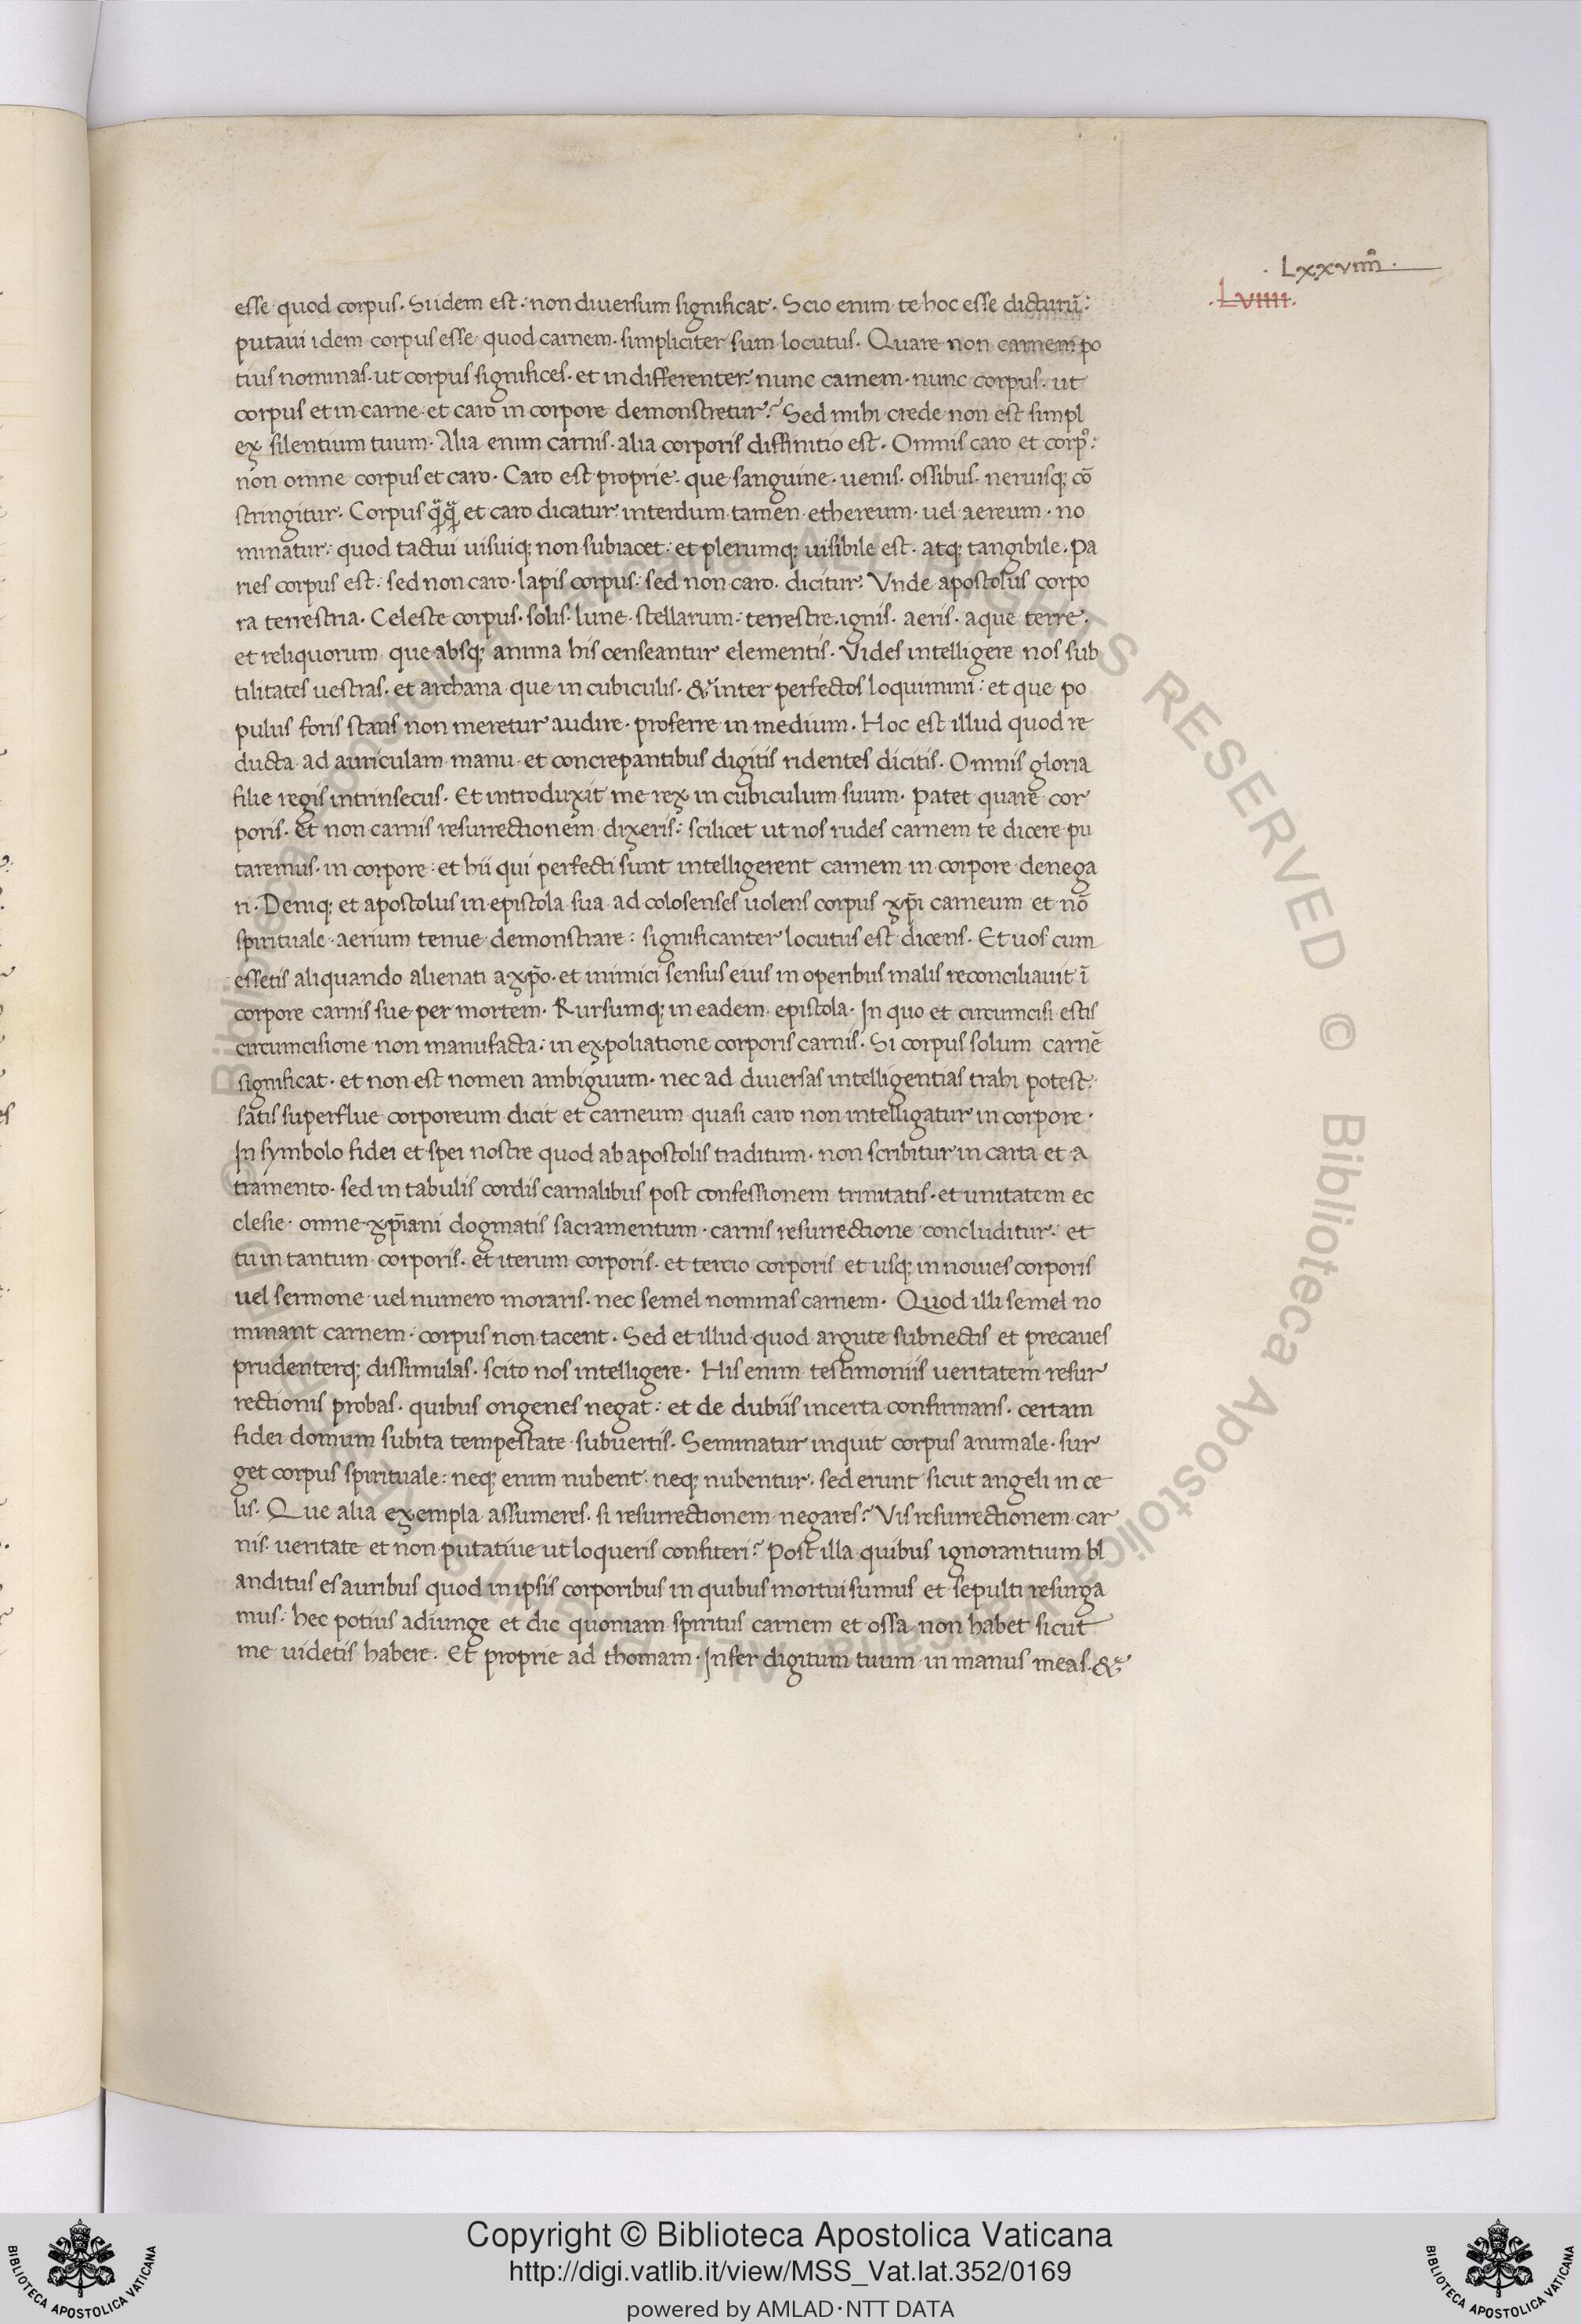 . Lxxviiii .
. Lviiii .
esse quod corpus. Si idem est: non diversum significat. Scio enim te hoc esse dicturū:
putaui idem corpus esse quod carnem. simpliciter sum locutus. Quare non carnem po
tius nominas. ut corpus significes. et indifferenter: nunc carnem. nunc corpus. ut
corpus et in carne et caro in corpore demonstretur? Sed mihi crede non est simpl
ex silentium tuum. Alia enim carnis. alia corporis diffinitio est. Omnis caro et corpꝰ:
non omne corpus et caro. Caro est proprie. que sanguine. uenis. ossibus. neruisq; cō
stringitur. Corpus qͣqͣ et caro dicatur interdum tamen ethereum. uel aereum. no
minatur: quod tactui uisuiq; non subiacet: et plerumq; uisibile est. atq; tangibile. Pa
ries corpus est: sed non caro. lapis corpus: sed non caro. dicitur. Vnde apostolus corpo
ra terrestria. Celeste corpus. solis. lune. stellarum: terrestre. ignis. aeris. aque terre.
et reliquorum que absq; anima his censeantur elementis. Vides intelligere nos sub
tilitates uestras. et archana que in cubiculis. & inter perfectos loquimini: et que po
pulus foris stans non meretur audire. proferre in medium. Hoc est illud quod re
ducta ad auriculam manu et concrepantibus digitis ridentes dicitis. Omnis gloria
filie regis intrinsecus. Et introduxit me rex in cubiculum suum. Patet quare cor
poris. et non carnis resurrectionem dixeris: scilicet ut nos rudes carnem te dicere pu
taremus. in corpore: et hii qui perfecti sunt intelligerent carnem in corpore denega
ri. Deniq; et apostolus in epistola sua ad colosenses uolens corpus xp̄i carneum et nō
spirituale aerium tenue demonstrare: significanter locutus est dicens. Et uos cum
essetis aliquando alienati a xp̄o. et inimici sensus eius in operibus malis reconciliauit ī
corpore carnis sue per mortem. Rursumq; in eadem epistola. In quo et circumcisi estis
circumcisione non manufacta: in expoliatione corporis carnis. Si corpus solum carnē
significat. et non est nomen ambiguum. nec ad diuersas intelligentias trahi potest:
satis superflue corporeum dicit et carneum quasi caro non intelligatur in corpore.
In symbolo fidei et spei nostre quod ab apostolis traditum. non scribitur in carta et a
tramento. sed in tabulis cordis carnalibus post confessionem trinitatis. et unitatem ec
clesie. omne xp̄iani dogmatis sacramentum. carnis resurrectione concluditur: et
tu in tantum corporis. et iterum corporis. et tercio corporis et usq; in nouies corporis
uel sermone uel numero moraris. nec semel nominas carnem. Quod illi semel no
minant carnem. corpus non tacent. Sed et illud quod argute subnectis et precaues
prudenterq; dissimulas. scito nos intelligere. His enim testimoniis ueritatem resur
rectionis probas. quibus origenes negat: et de dubiis incerta confirmans. certam
fidei domum subita tempestate subuertis. Seminatur inquit corpus animale. sur
get corpus spirituale: neq; enim nubent. neq; nubentur. sed erunt sicut angeli in ce
lis. Que alia exempla assumeres. si resurrectionem negares? Vis resurrectionem car
nis. ueritate et non putatiue ut loqueris confiteri? Post illa quibus ignorantium bl
anditus es auribus quod in ipsis corporibus in quibus mortui sumus et sepulti resurga
mus: hec potius adiunge et dic quoniam spiritus carnem et ossa non habet sicut
me uidetis habere. Et proprie ad thomam. Infer digitum tuum in manus meas. &
Copyright © Biblioteca Apostolica Vaticana
http://digi.vatlib.it/view/MSS_Vat.lat.352/0169
powered by AMLAD·NTT DATA